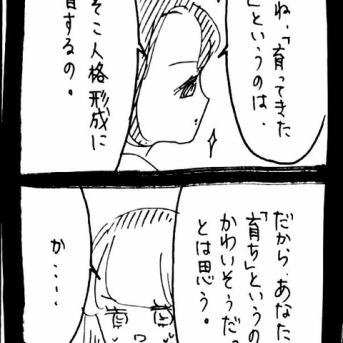 ね、「育ってきた
」というのは、
そこ人格形成に
するの。
だから、あなた
「育ち」というの
かわいそうだ
とは思う。
か・・・・